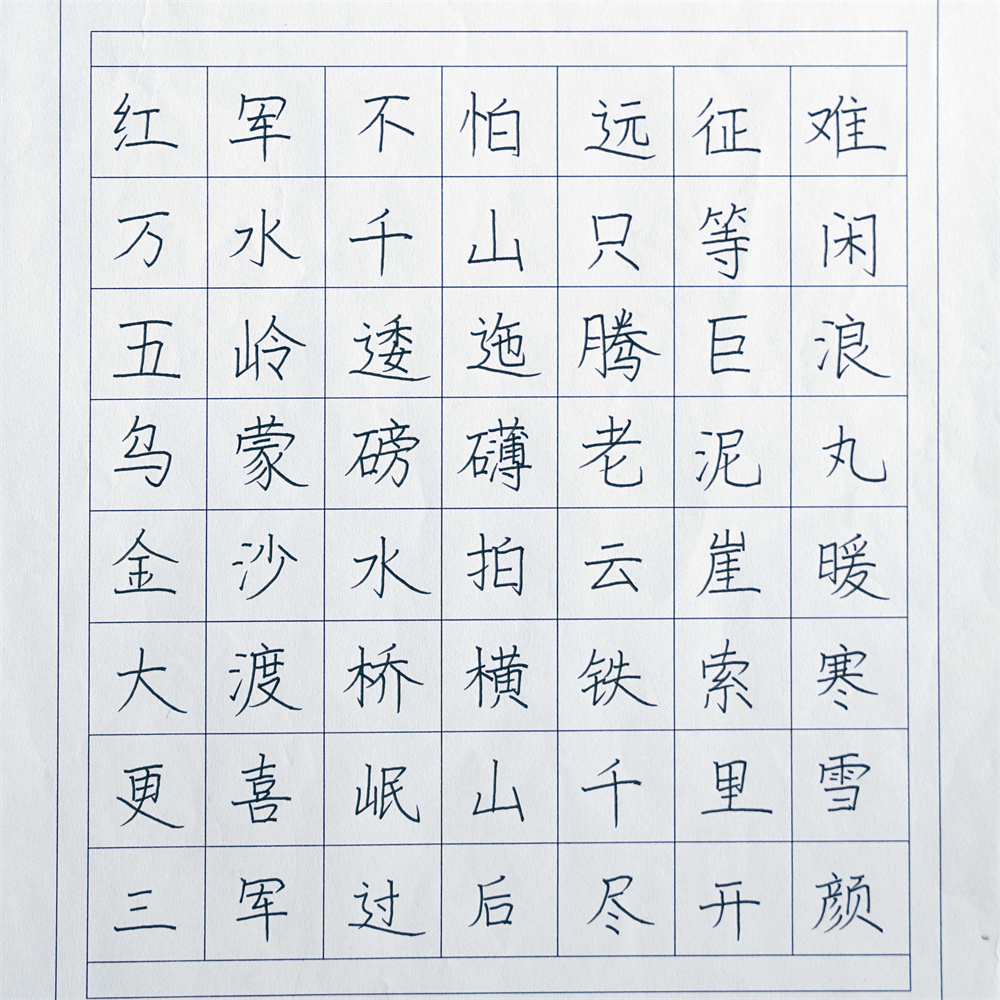 红军不怕远征难
万水千山只等闲
五岭逶迤腾巨浪
乌蒙磅礴老泥丸
金沙水拍云崖暖
大渡桥横铁索寒
更喜岷山千里雪
三军过后尽开颜